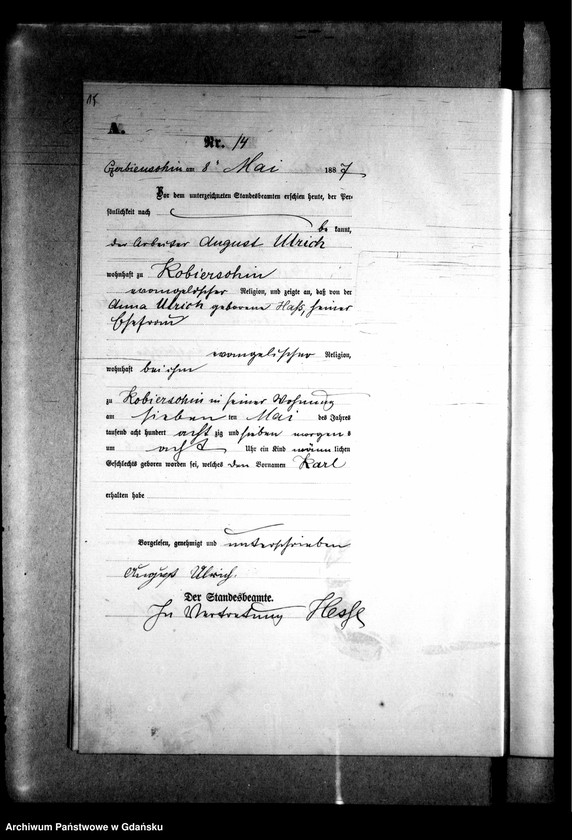 15
A.
Nr. 14
Czerbienschin am 8ᵗ Mai 1887
Vor dem unterzeichneten Standesbeamten erschien heute, der Per-
sönlichkeit nach
be kannt,
der Arbeiter August Ulrich
wohnhaft zu Kobierschin
evangelischer Religion, und zeigte an, daß von der
Anna Ulrich geborene Haß, seiner
Ehefrau
evangelischer Religion,
wohnhaft bei ihm
zu Kobierschin in seiner Wohnung
am sieben ten Mai des Jahres
tausend acht hundert acht zig und sieben morgens
um acht Uhr ein Kind männ lichen
Geschlechts geboren worden sei, welches den Vornamen Karl
erhalten habe
Vorgelesen, genehmigt und unterschrieben
August Ulrich.
Der Standesbeamte.
In Vertretung Hesse
Archiwum Państwowe w Gdańsku